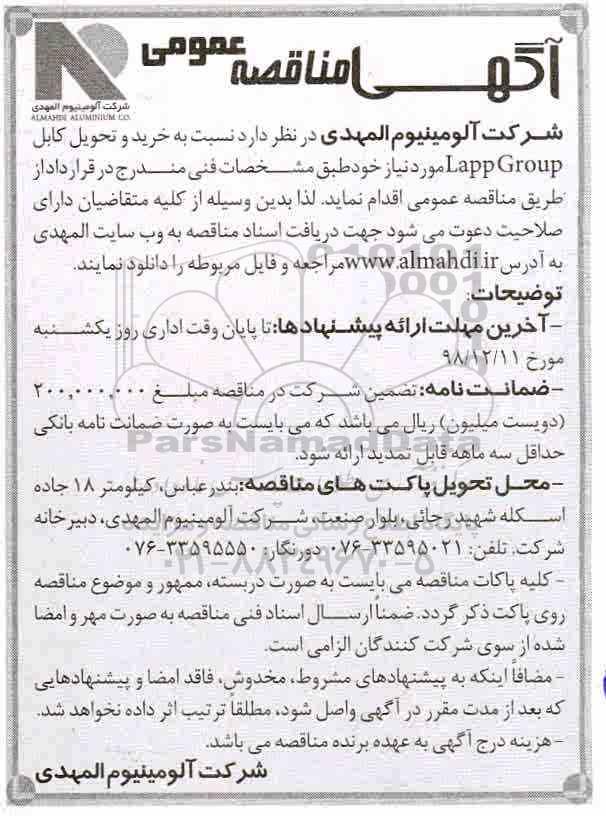 آگهی مناقصه عمومی
شرکت آلومینیوم المهدی
ALMAHDI ALUMINIUM CO.
شرکت آلومینیوم المهدی در نظر دارد نسبت به خرید و تحویل کابل
Lapp Group مورد نیاز خود طبق مشخصات فنی مندرج در قرارداد از
طریق مناقصه عمومی اقدام نماید. لذا بدین وسیله از کلیه متقاضیان دارای
صلاحیت دعوت می شود جهت دریافت اسناد مناقصه به وب سایت المهدی
به آدرس www.almahdi.ir مراجعه و فایل مربوطه را دانلود نمایند.
توضیحات:
-آخرین مهلت ارائه پیشنهادها: تا پایان وقت اداری روز یکشنبه
مورخ ۹۸/۱۲/۱۱
-ضمانت نامه: تضمین شرکت در مناقصه مبلغ ۲۰۰,۰۰۰,۰۰۰
(دویست میلیون) ریال می باشد که می بایست به صورت ضمانت نامه بانکی
حداقل سه ماهه قابل تمدید ارائه شود.
ParsNamadData
-محل تحویل پاکت های مناقصه: بندرعباس، کیلومتر ۱۸ جاده
اسکله شهید رجائی، بلوار صنعت، شرکت آلومینیوم المهدی، دبیرخانه
شرکت. تلفن: ۳۳۵۹۵۰۲۱-۰۷۶ دورنگار: ۳۳۵۹۵۵۵۰-۰۷۶
۰۲۱-۸۸۳۴۹۶۷۰-۵
- کلیه پاکات مناقصه می بایست به صورت دربسته، ممهور و موضوع مناقصه
روی پاکت ذکر گردد. ضمناً ارسال اسناد فنی مناقصه به صورت مهر و امضا
شده از سوی شرکت کنندگان الزامی است.
- مضافاً اینکه به پیشنهادهای مشروط، مخدوش، فاقد امضا و پیشنهادهایی
که بعد از مدت مقرر در آگهی واصل شود، مطلقاً ترتیب اثر داده نخواهد شد.
- هزینه درج آگهی به عهده برنده مناقصه می باشد.
شرکت آلومینیوم المهدی